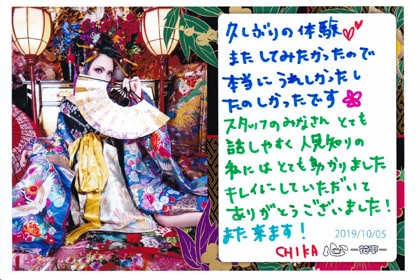 久しぶりの体験
またしてみたかったので
本当にうれしかったし
たのしかったです
スタッフのみなさん とても
話しやすく 人見知りの
私にはとても助かりました
キレイにしていただいて
ありがとうございました!
また来ます!
2019/10/05
CHIKA